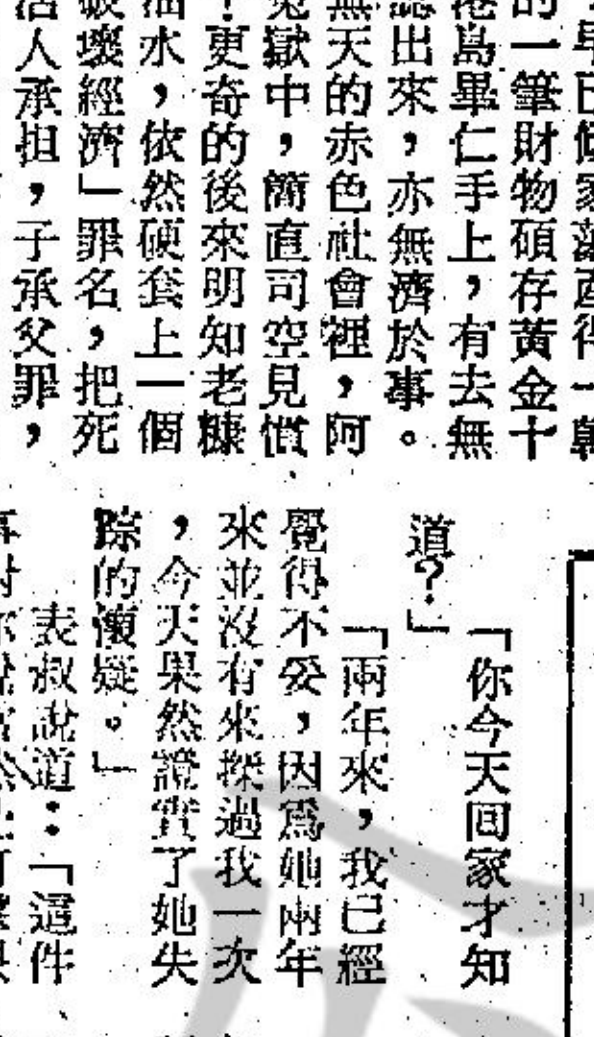 早已傾家蕩產得一
的一筆財物碩存黃金十
港島畢仁手上，有去無
認出來，亦無濟於事。
無天的赤色社會裡，阿
冤獄中，簡直司空見慣
！更奇的後來明知老糠
油水，依然硬套上一個
破壞經濟」罪名，把死
活人承担，子承父罪，
「你今天回家才知
道？」
「兩年來，我已經
覺得不妥，因爲她兩年
來並沒有來探過我一次
，今天果然證實了她失
踪的懷疑。」
表叔說道：「這件